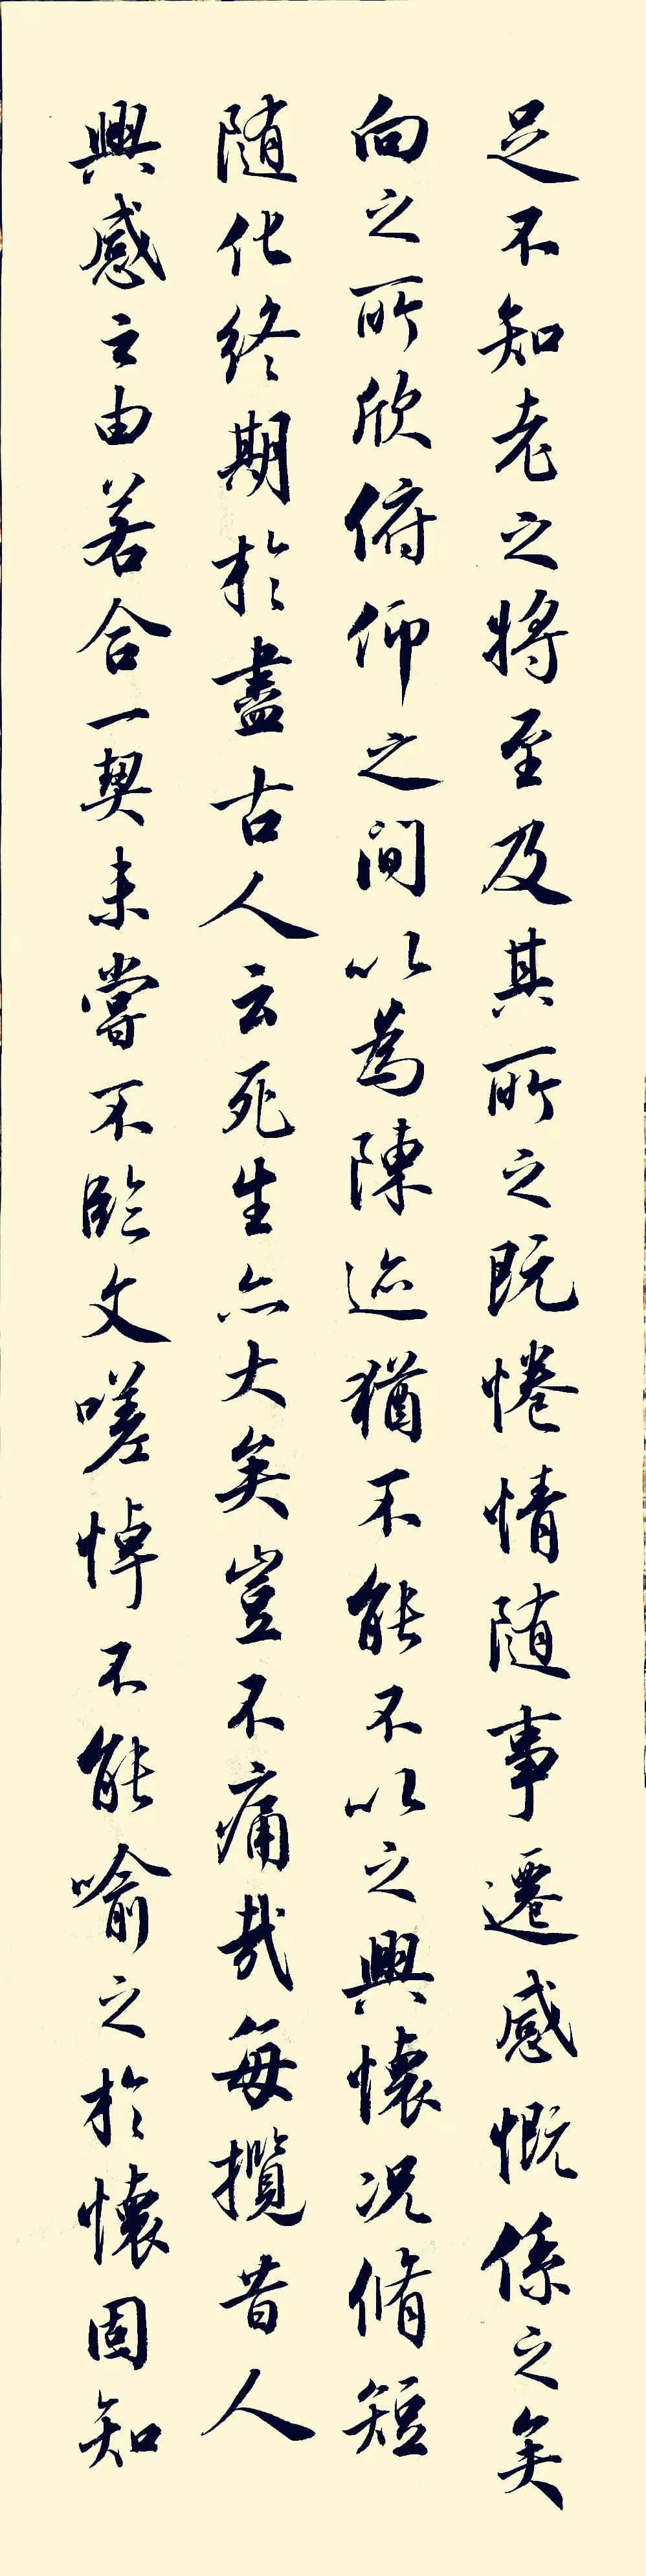 足不知老之将至及其所之既惓情随事遷感慨係之矣
向之所欣俯仰之間以為陳迹猶不能不以之興懷况脩短
随化終期於盡古人云死生亦大矣豈不痛哉每攬昔人
興感之由若合一契未嘗不臨文嗟悼不能喻之於懷固知